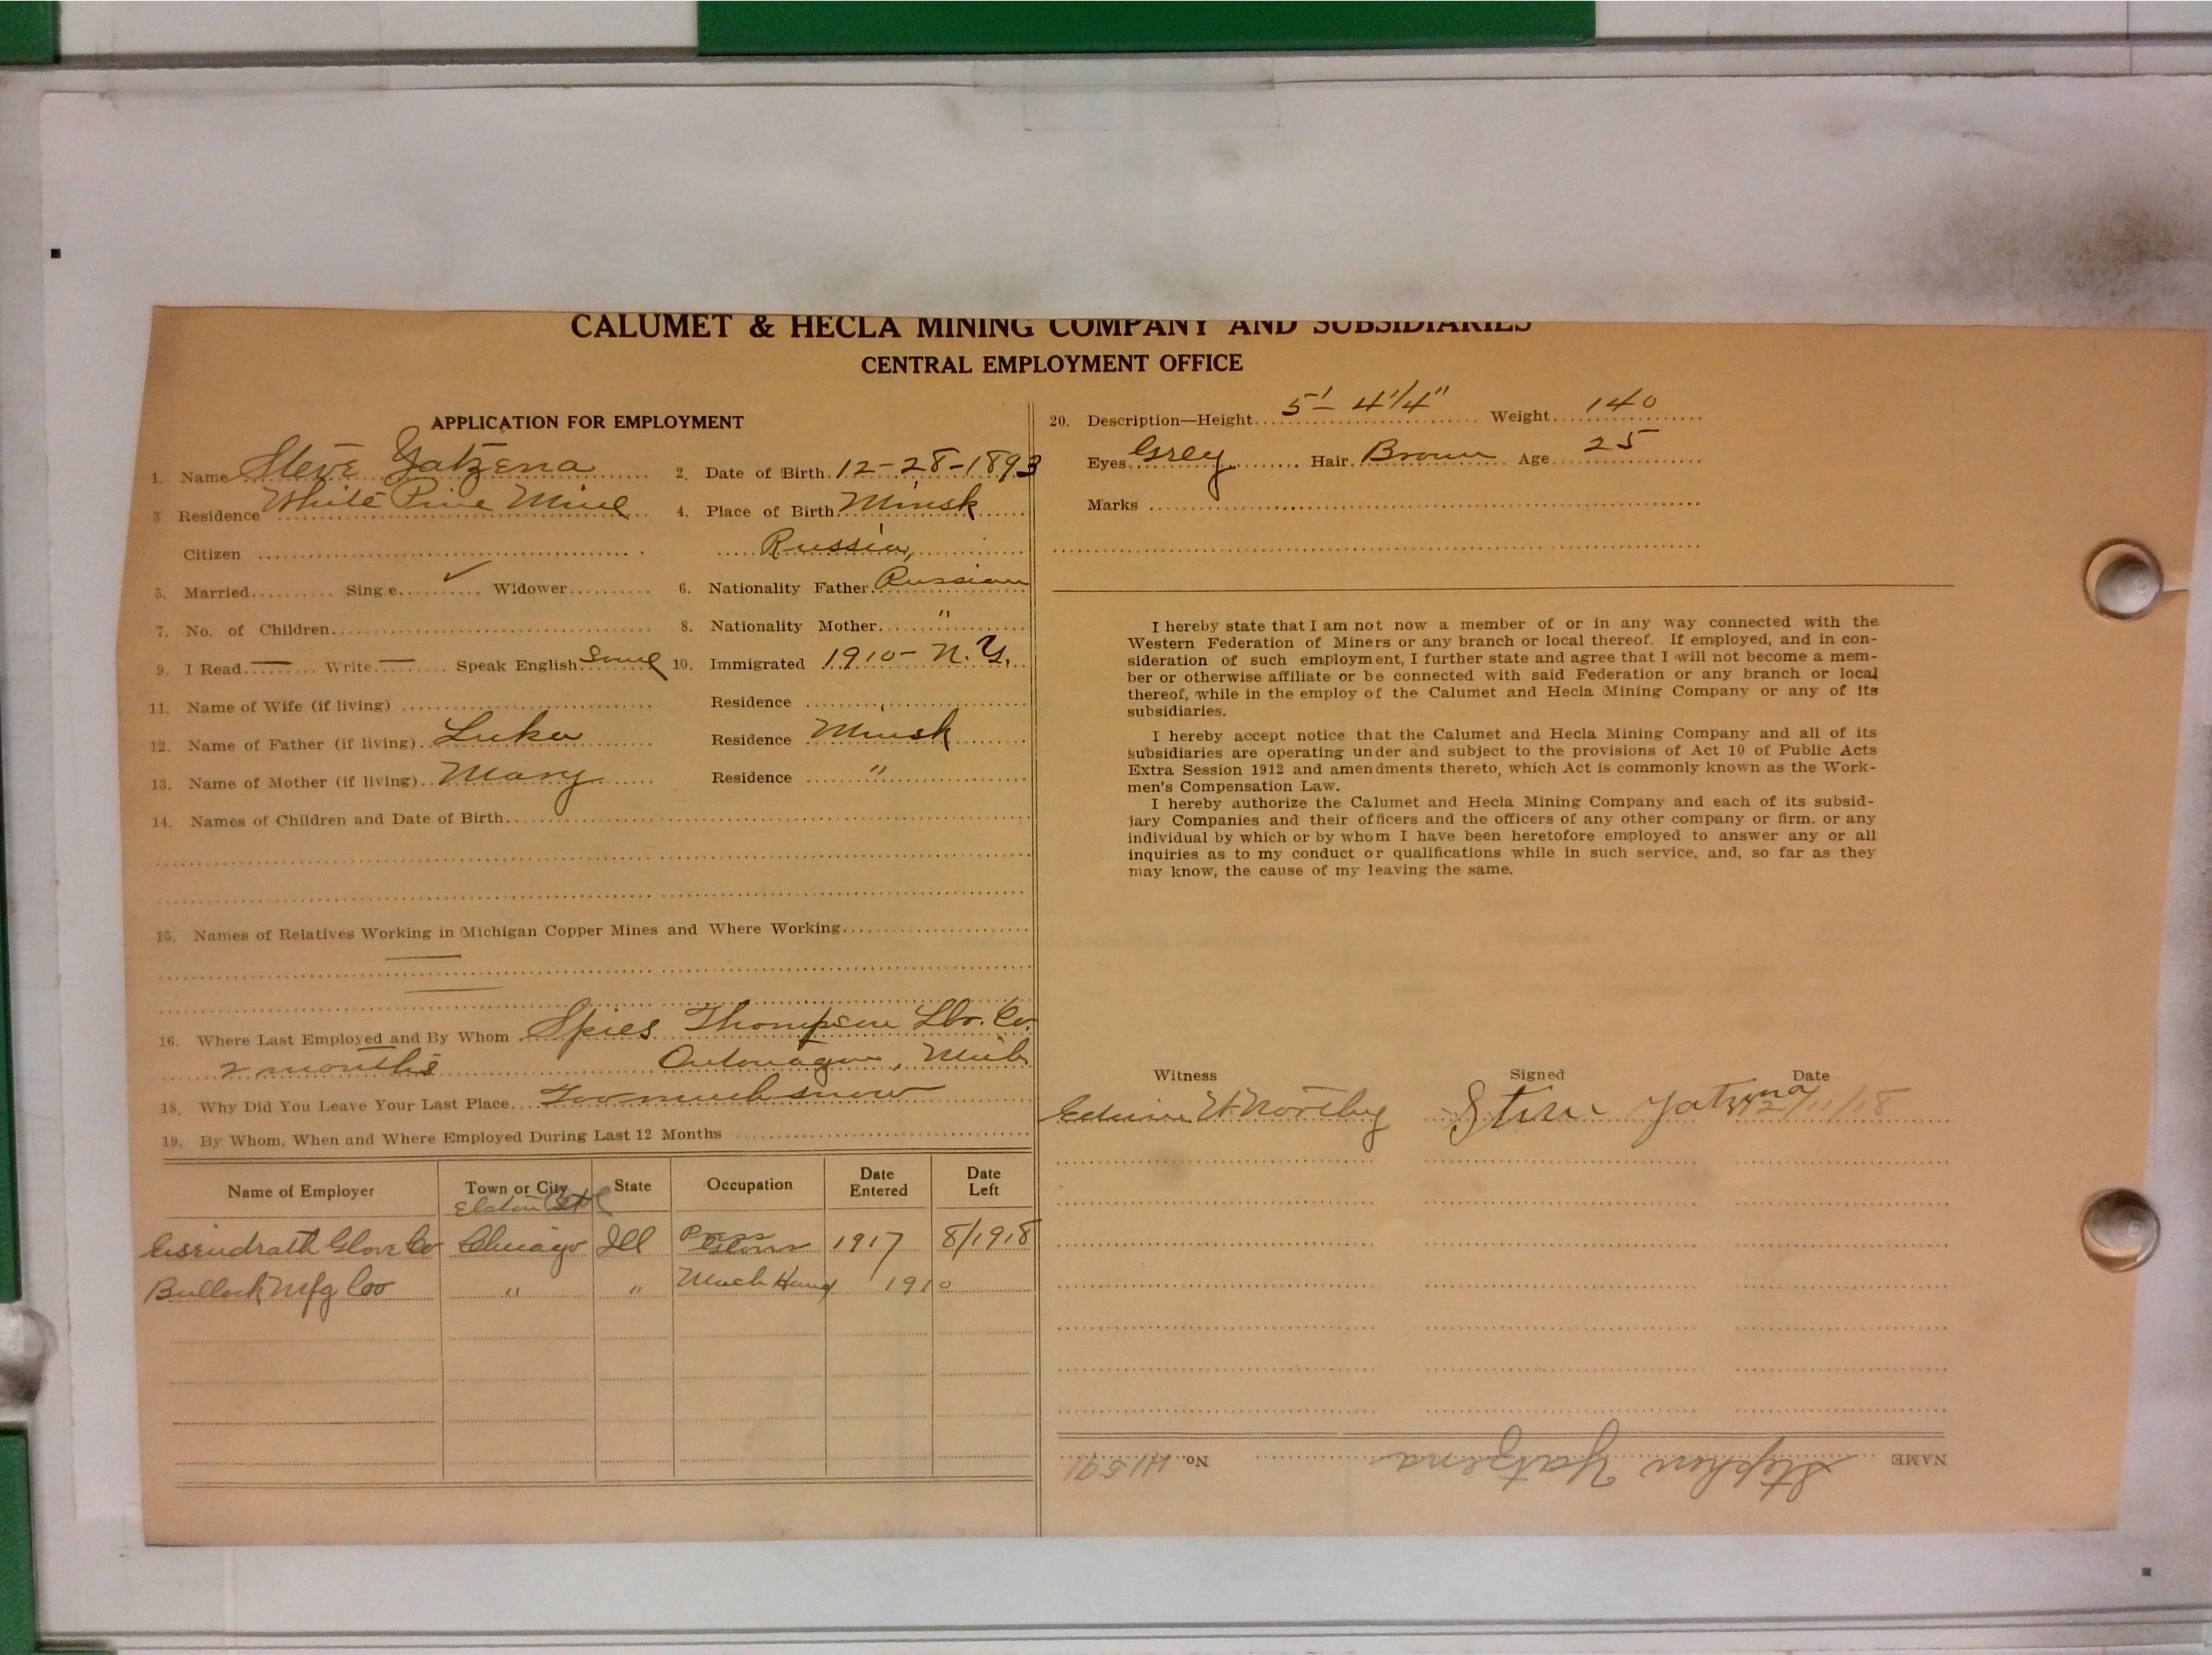 CALUMET & HECLA MINING COMPANY AND SUBSIDIARIES
CENTRAL EMPLOYMENT OFFICE
APPLICATION FOR EMPLOYMENT
1. Name Steve Yatzena
2. Date of Birth 12-28-1893
3 Residence White Pine Mine
4. Place of Birth Minsk
Citizen
Russia,
5. Married Sing e ✓ Widower
6. Nationality Father Russian
7. No. of Children
8. Nationality Mother "
9. I Read — Write — Speak English Some
10. Immigrated 1910 - N.Y.
11. Name of Wife (if living)
Residence
12. Name of Father (if living) Luka
Residence Minsk
13. Name of Mother (if living) Mary
Residence "
14. Names of Children and Date of Birth
15. Names of Relatives Working in Michigan Copper Mines and Where Working
16. Where Last Employed and By Whom Spies Thompson Lbr. Co.
2 months Ontonagon, Mich
18. Why Did You Leave Your Last Place Too much snow
19. By Whom, When and Where Employed During Last 12 Months
Name of Employer Town or City State Occupation Date Entered Date Left
Elston
Eisendrath Glove Co Chicago Ill Press 1917 8/1918
Bullock Mfg Coo " " Mach Hand 1910
20. Description—Height 5'- 4 1/4" Weight 140
Eyes Grey Hair Brown Age 25
Marks
I hereby state that I am not now a member of or in any way connected with the
Western Federation of Miners or any branch or local thereof. If employed, and in con-
sideration of such employment, I further state and agree that I will not become a mem-
ber or otherwise affiliate or be connected with said Federation or any branch or local
thereof, while in the employ of the Calumet and Hecla Mining Company or any of its
subsidiaries.
I hereby accept notice that the Calumet and Hecla Mining Company and all of its
subsidiaries are operating under and subject to the provisions of Act 10 of Public Acts
Extra Session 1912 and amendments thereto, which Act is commonly known as the Work-
men's Compensation Law.
I hereby authorize the Calumet and Hecla Mining Company and each of its subsid-
iary Companies and their officers and the officers of any other company or firm, or any
individual by which or by whom I have been heretofore employed to answer any or all
inquiries as to my conduct or qualifications while in such service, and, so far as they
may know, the cause of my leaving the same.
Witness Signed Date
Edwin W. Northey Stive Yatzyna 12/11/18
NAME Stephen Yatzena No. H1591